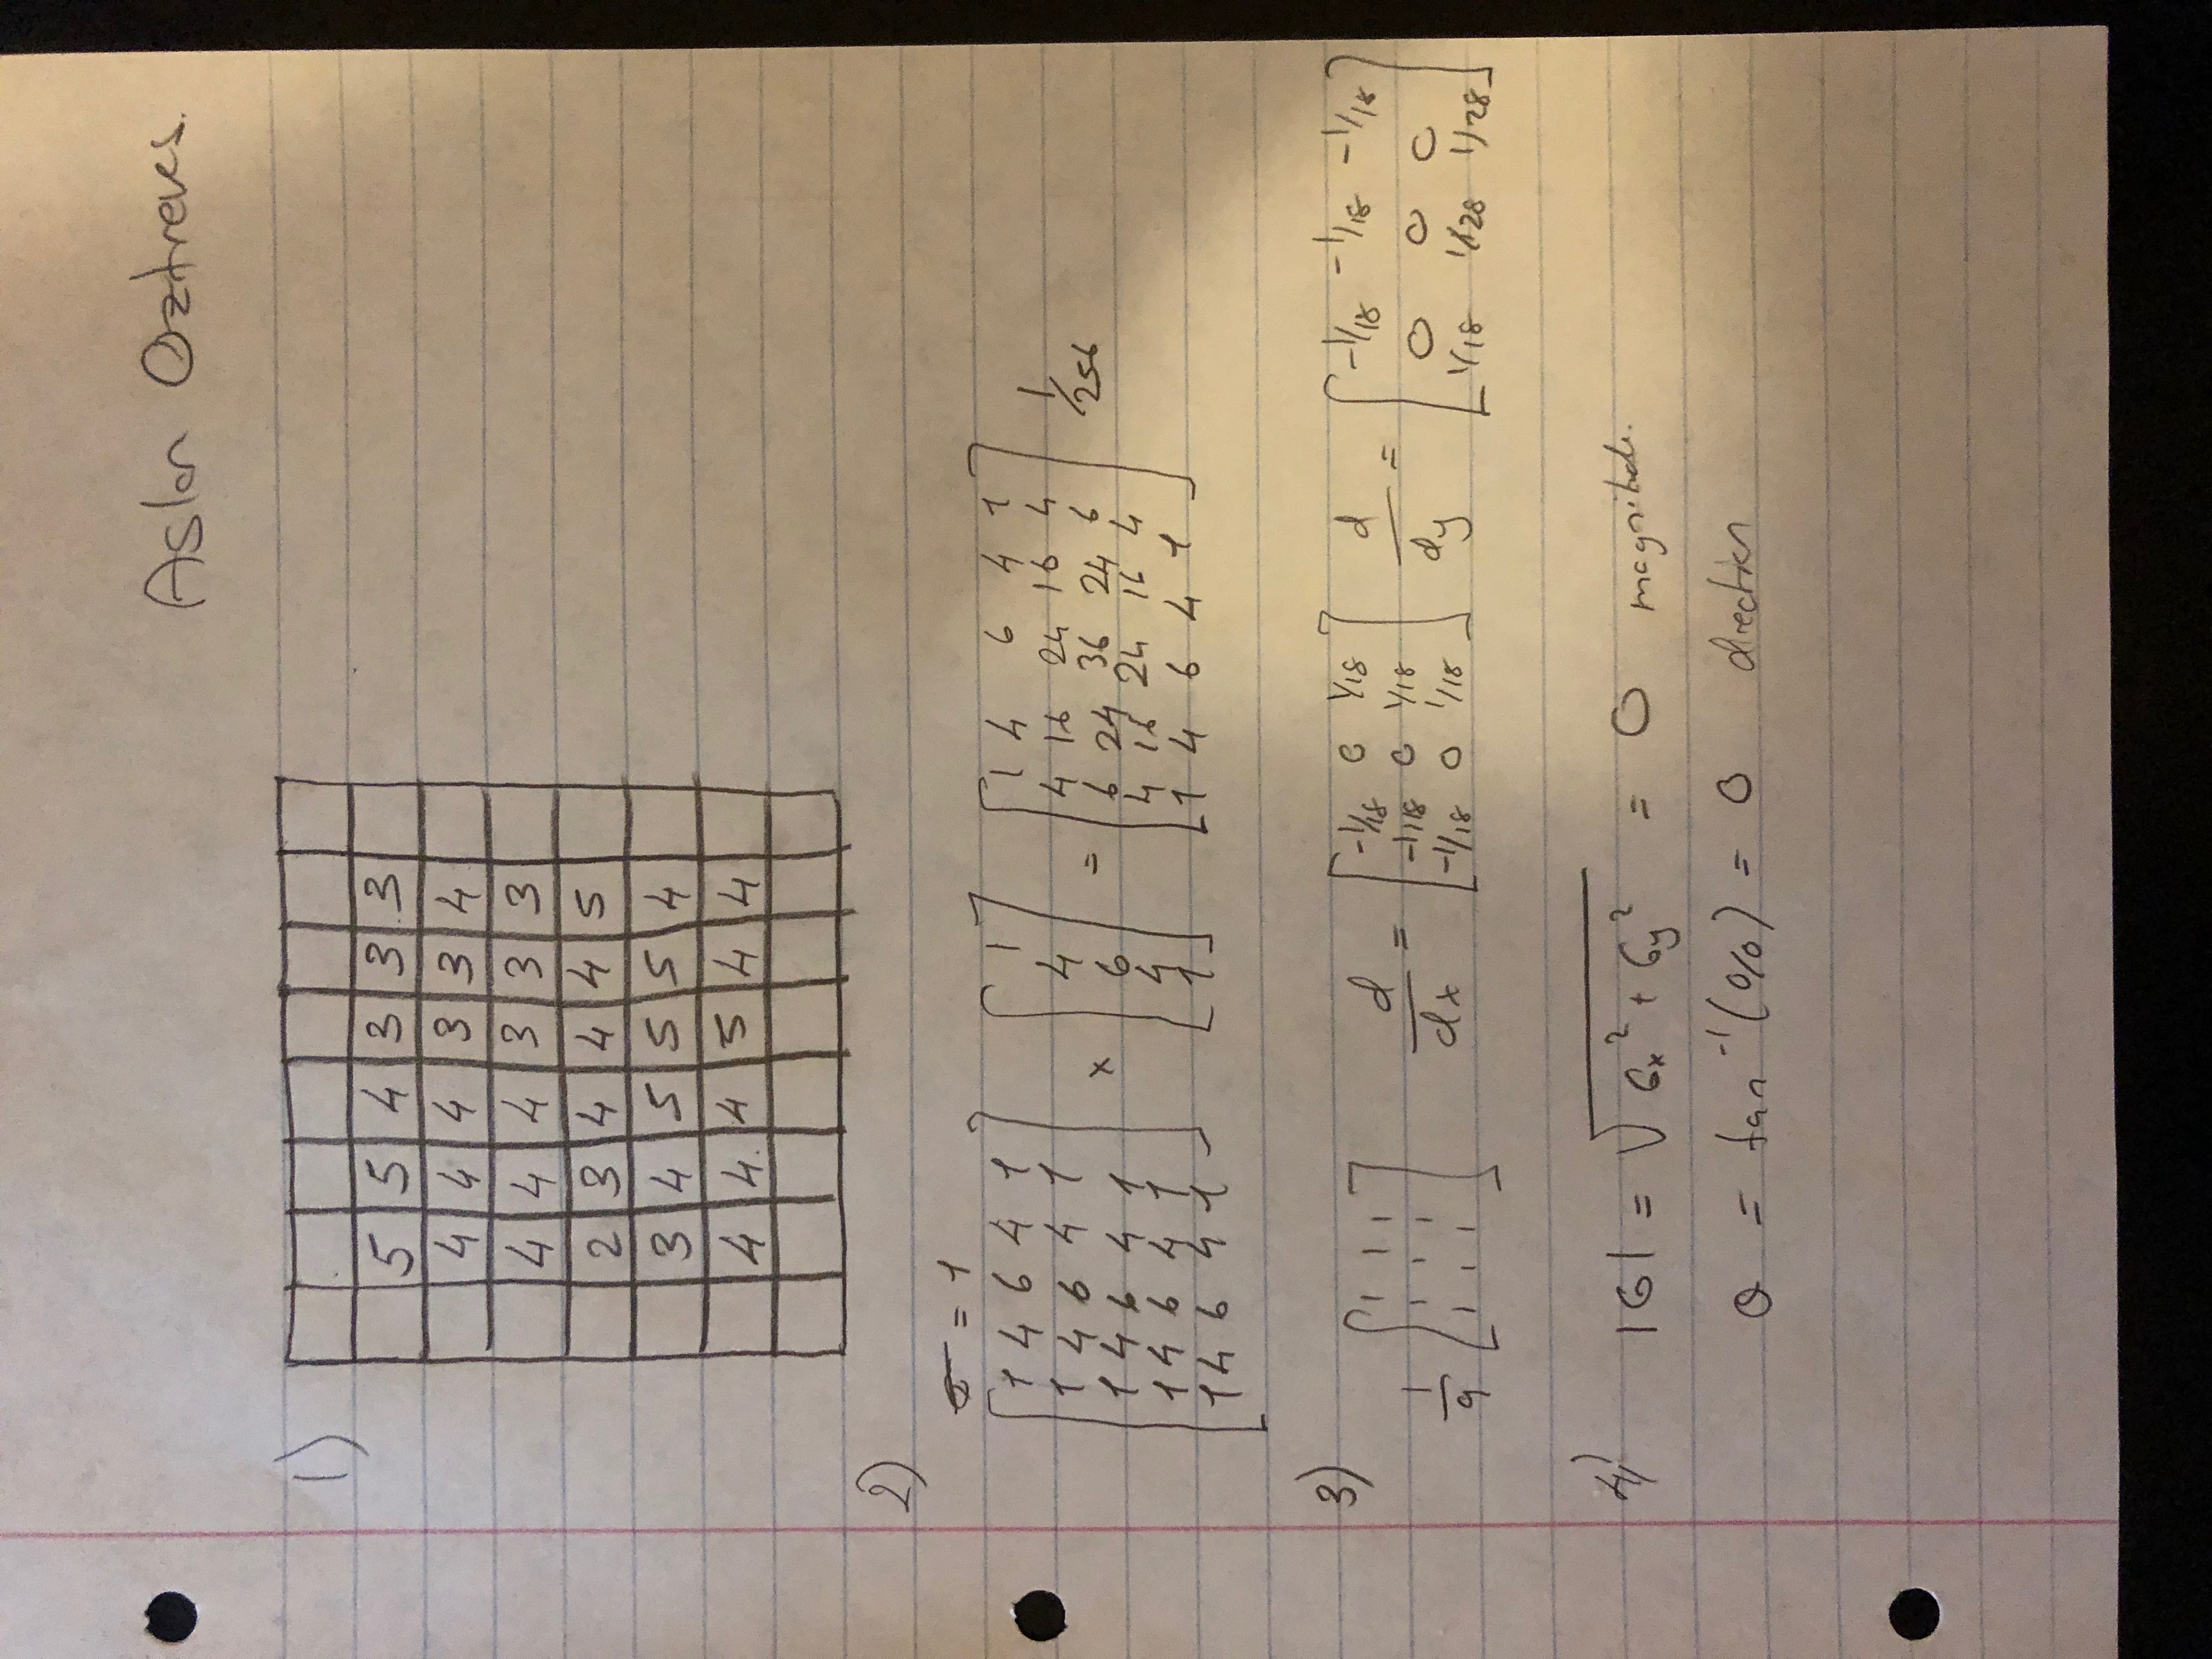 Aslan Oztreves.
1)
5 5 4 3 3 3
4 4 4 3 3 4
4 4 4 3 3 3
2 3 4 4 4 5
3 4 5 5 5 4
4 4 4 5 4 4
2)
σ = 1
[1 4 6 4 1] × [1] = [1 4 6 4 1]
[1 4 6 4 1] [4] [4 16 24 16 4] 1/256
[1 4 6 4 1] [6] [6 24 36 24 6]
[1 4 6 4 1] [4] [4 16 24 16 4]
[1 4 6 4 1] [1] [1 4 6 4 1]
3)
[1 1 1] [-1/18 0 1/18] [-1/18 -1/18 -1/18]
1/9 [1 1 1] d/dx = [-1/18 0 1/18] d/dy = [0 0 0]
[1 1 1] [-1/18 0 1/18] [1/18 1/28 1/28]
4) |G| = √Gx² + Gy² = 0 magnitude.
θ = tan⁻¹(0/0) = 0 direction